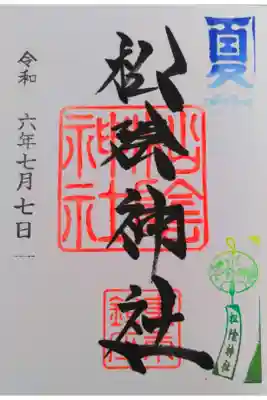 夏
松陰神社
松陰神社
令和 六年七月七日
松陰神社